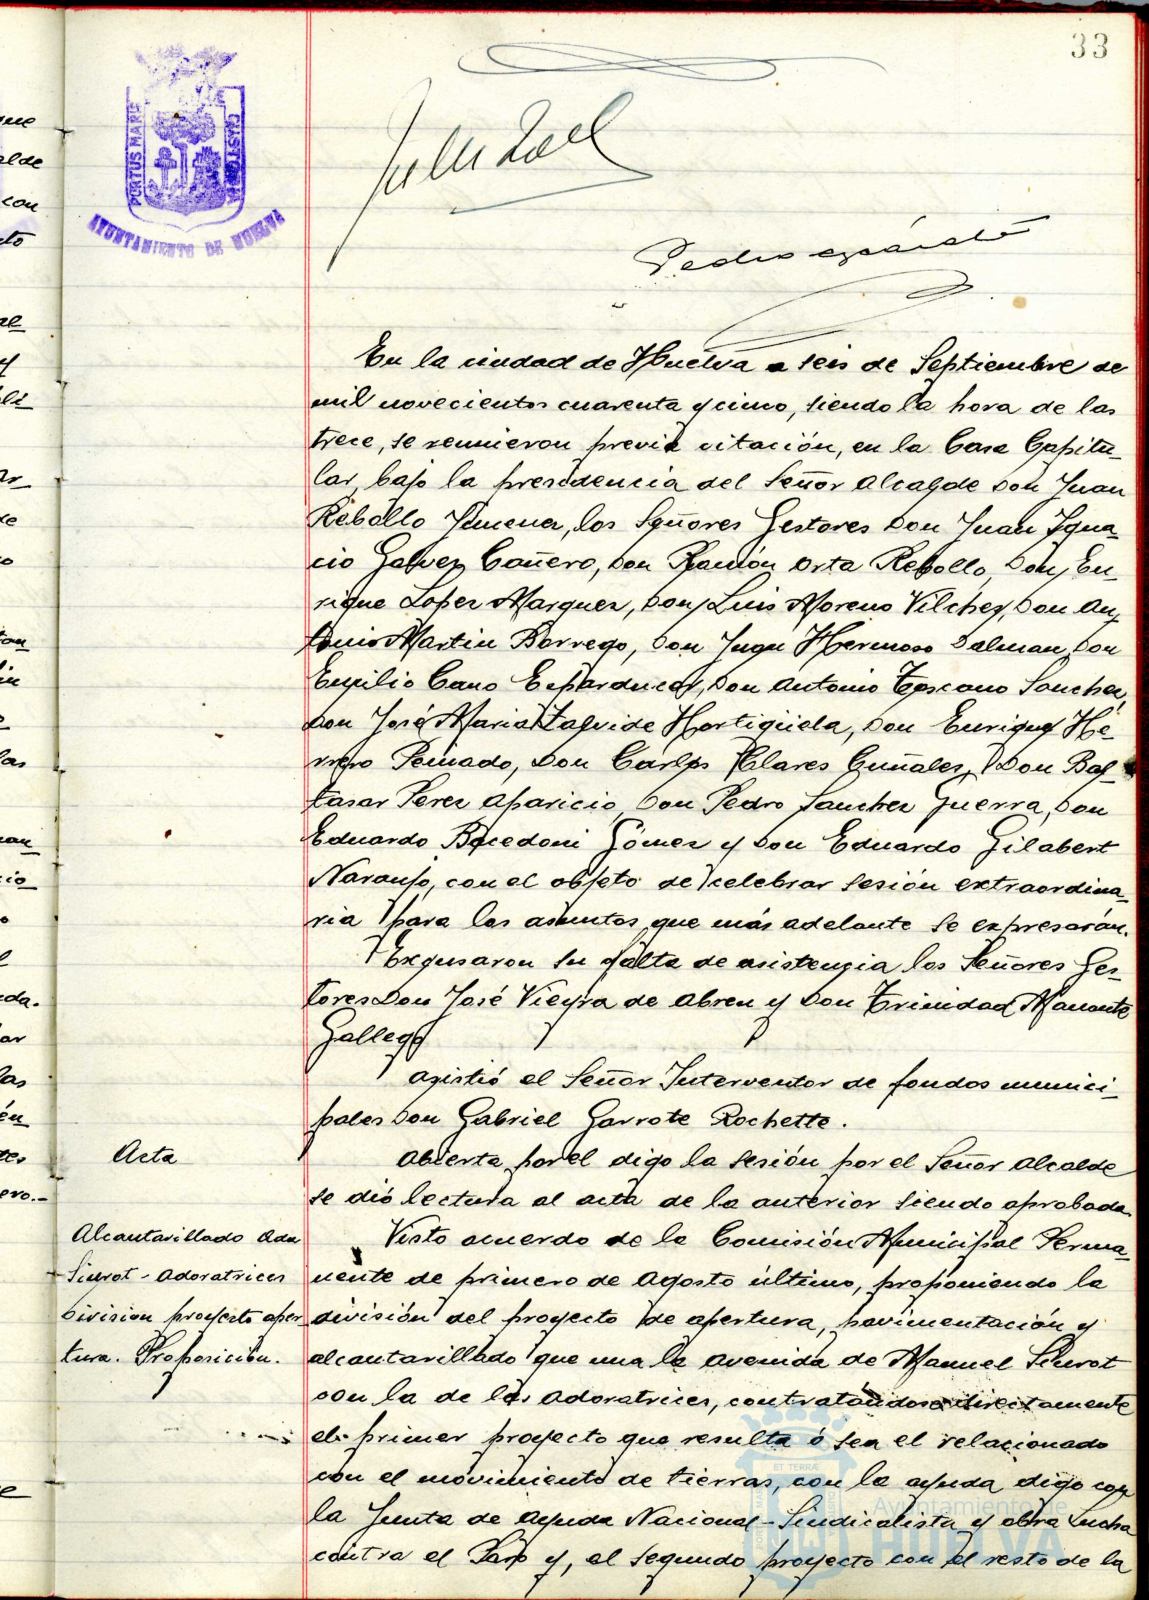 33
PORTUS MARIS
AYUNTAMIENTO DE HUELVA
En la ciudad de Huelva a seis de Septiembre de
mil novecientos cuarenta y cinco, siendo la hora de las
trece, se reunieron previa citación, en la Casa Capitu-
lar, bajo la presidencia del Señor Alcalde Don Juan
Rebollo Jimenez, los Señores Gestores Don Juan Igna-
cio Galvez Cañero, Don Ramón Orta Rebollo, Don En-
rique Lopez Marquez, Don Luis Moreno Vilchez, Don An-
tonio Martin Borrego, Don Hermoso Dalman, Don
Emilio Cano Don Antonio Toscano Sanchez,
Don José Maria Zalvide Hortigüela, Don Enrique He-
rrero Peinado, Don Carlos Clares Don Bal-
tasar Perez Aparicio, Don Pedro Sanchez Guerra, Don
Eduardo Bocedoni Gómez y Don Eduardo Gilabert
Naranjo, con el objeto de celebrar sesión extraordina-
ria para los asuntos que más adelante se expresarán.
Excusaron su falta de asistencia los Señores Ges-
tores Don José Vieyra de Abreu y Don Trinidad Manante
Gallego
Asistió el Señor Interventor de fondos munici-
pales Don Gabriel Garrote Rochette.
Acta
Abierta por el digo la sesión por el Señor Alcalde
se dió lectura al acta de la anterior siendo aprobada.
Alcantarillado Ada
Siurot - Adoratrices
Division proyecto aper
tura. Proposición.
Visto acuerdo de la Comisión Municipal Perma-
nente de primero de Agosto último, proponiendo la
división del proyecto de apertura, pavimentación y
alcantarillado que una la avenida de Manuel Siurot
con la de las Adoratrices, contratándose directamente
el primer proyecto que resulta ó sea el relacionado
con el movimiento de tierras, con la ayuda digo con
la Junta de ayuda Nacional-Sindicalista y obra Lucha
contra el Paro y, el segundo proyecto con el resto de la
Ayuntamiento de
HUELVA